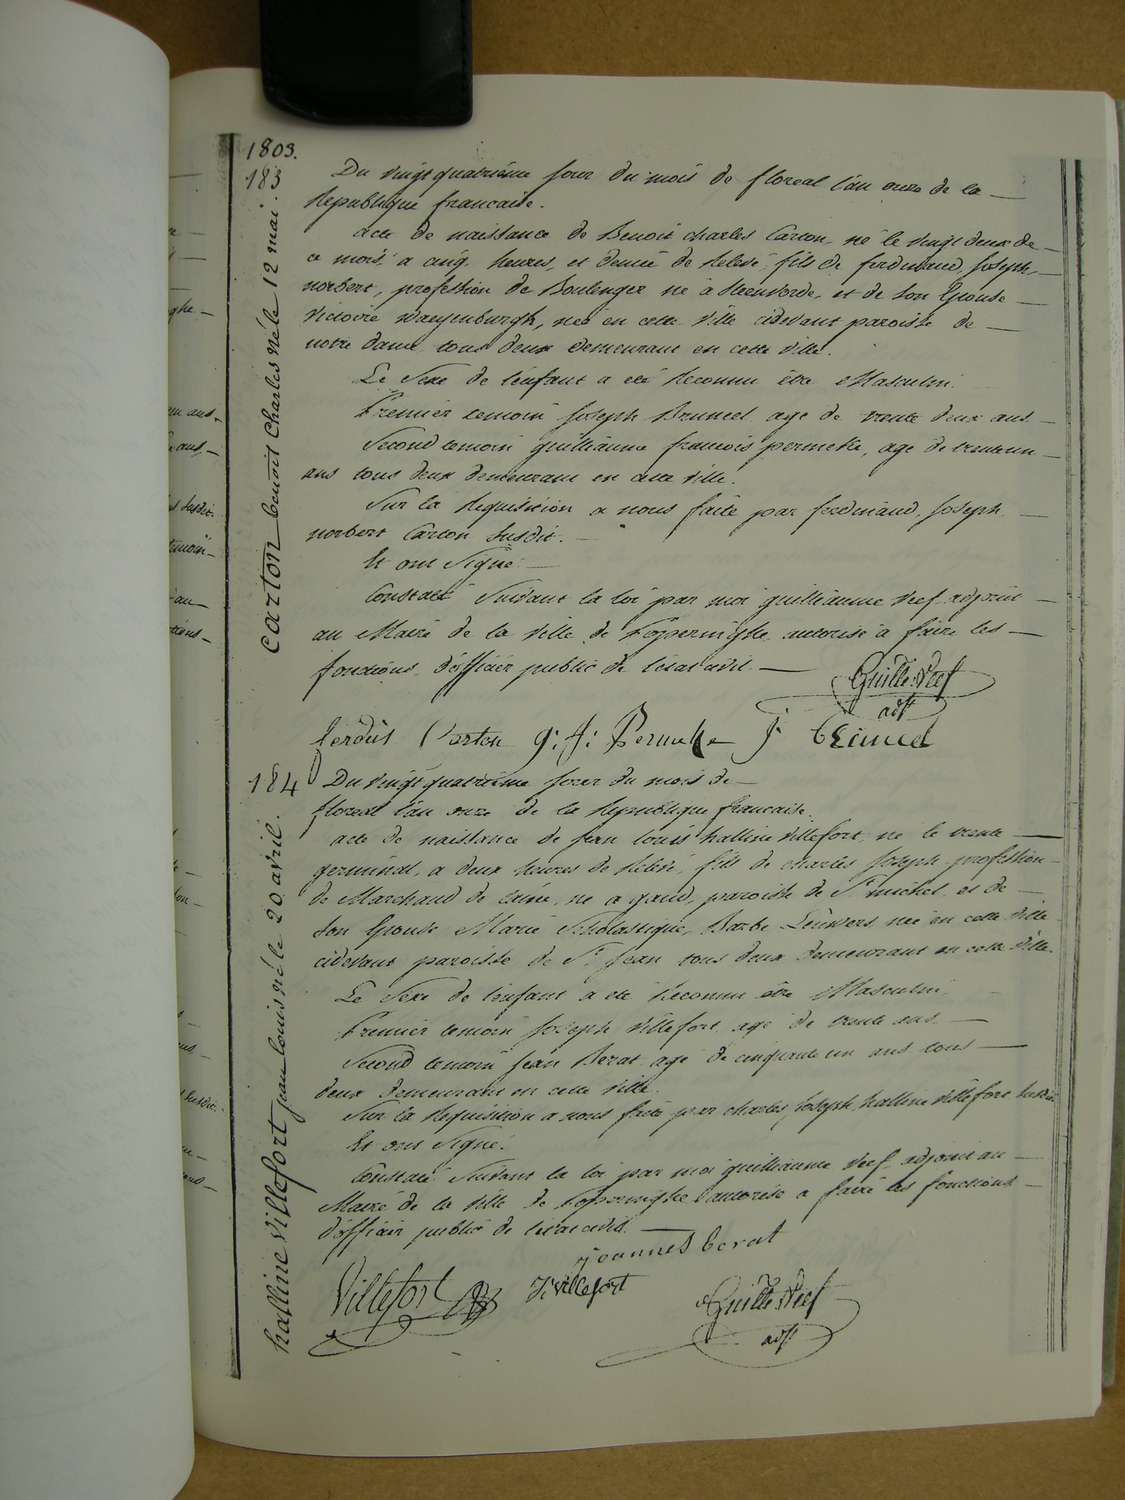 1803.
183
carton benoit Charles né le 12 mai.
Du vingt quatrième jour du mois de floreal l'an onze de la —
Republique francaise.
acte de naissance de Benoit charles Carton, né le vingt deux de —
ce mois a cinq heures, et demie de Relevé fils de ferdinand Joseph,
norbert, profession de Boulenger né a Steenvorde, et de son Epouse —
victoire Waeyenburgh, née en cette ville cidevant paroisse de —
notre dame tous deux demeurant en cette ville.
Le Sexe de l'enfant a été Reconnu être Masculin.
Premier temoin Joseph Bruneel agé de trente deux ans. —
Second temoin guilliaume francois permeke, agé de trenteun —
ans tous deux demeurant en cette ville.
Sur la Requisition a nous faite par ferdinand Joseph —
norbert Carton susdit. —
Et ont Signé. —
Constaté Suivant la loi par moi guilliaume Neef adjoint —
au Maire de la ville de Poperinghe autorisé a faire les —
fonctions d'officier public de l'etat civil. —
Guille Neef
adjt
ferdis Carton g: f: Permeke J. Bruneel
184
halline villefort jean louis né le 20 avril.
Du vingt quatrième jour du mois de —
floreal l'an onze de la Republique francaise.
acte de naissance de Jean louis halline villefort né le trente —
germinal, a deux heures de Relevé, fils de charles Joseph profession —
de Marchand de né a gand, paroisse de St michel et de —
Son Epouse Marie Scholastique, Barbe née en cette ville
cidevant paroisse de St Jean tous deux demeurant en cette ville.
Le Sexe de l'enfant a été Reconnu être Masculin.
Premier temoin Joseph villefort agé de trente ans. —
Second temoin Jean Berat agé de cinquante un ans tous —
deux demeurant en cette ville.
Sur la Requisition a nous faite par charles, joseph, halline villefort susdit.
Et ont Signé.
Constaté Suivant la loi par moi guilliaume Neef adjoint au —
Maire de la ville de Poperinghe autorisé a faire les fonctions —
d'officier public de l'etat civil. —
joannes berat
Villefort J: villefort
Guille Neef
adjt